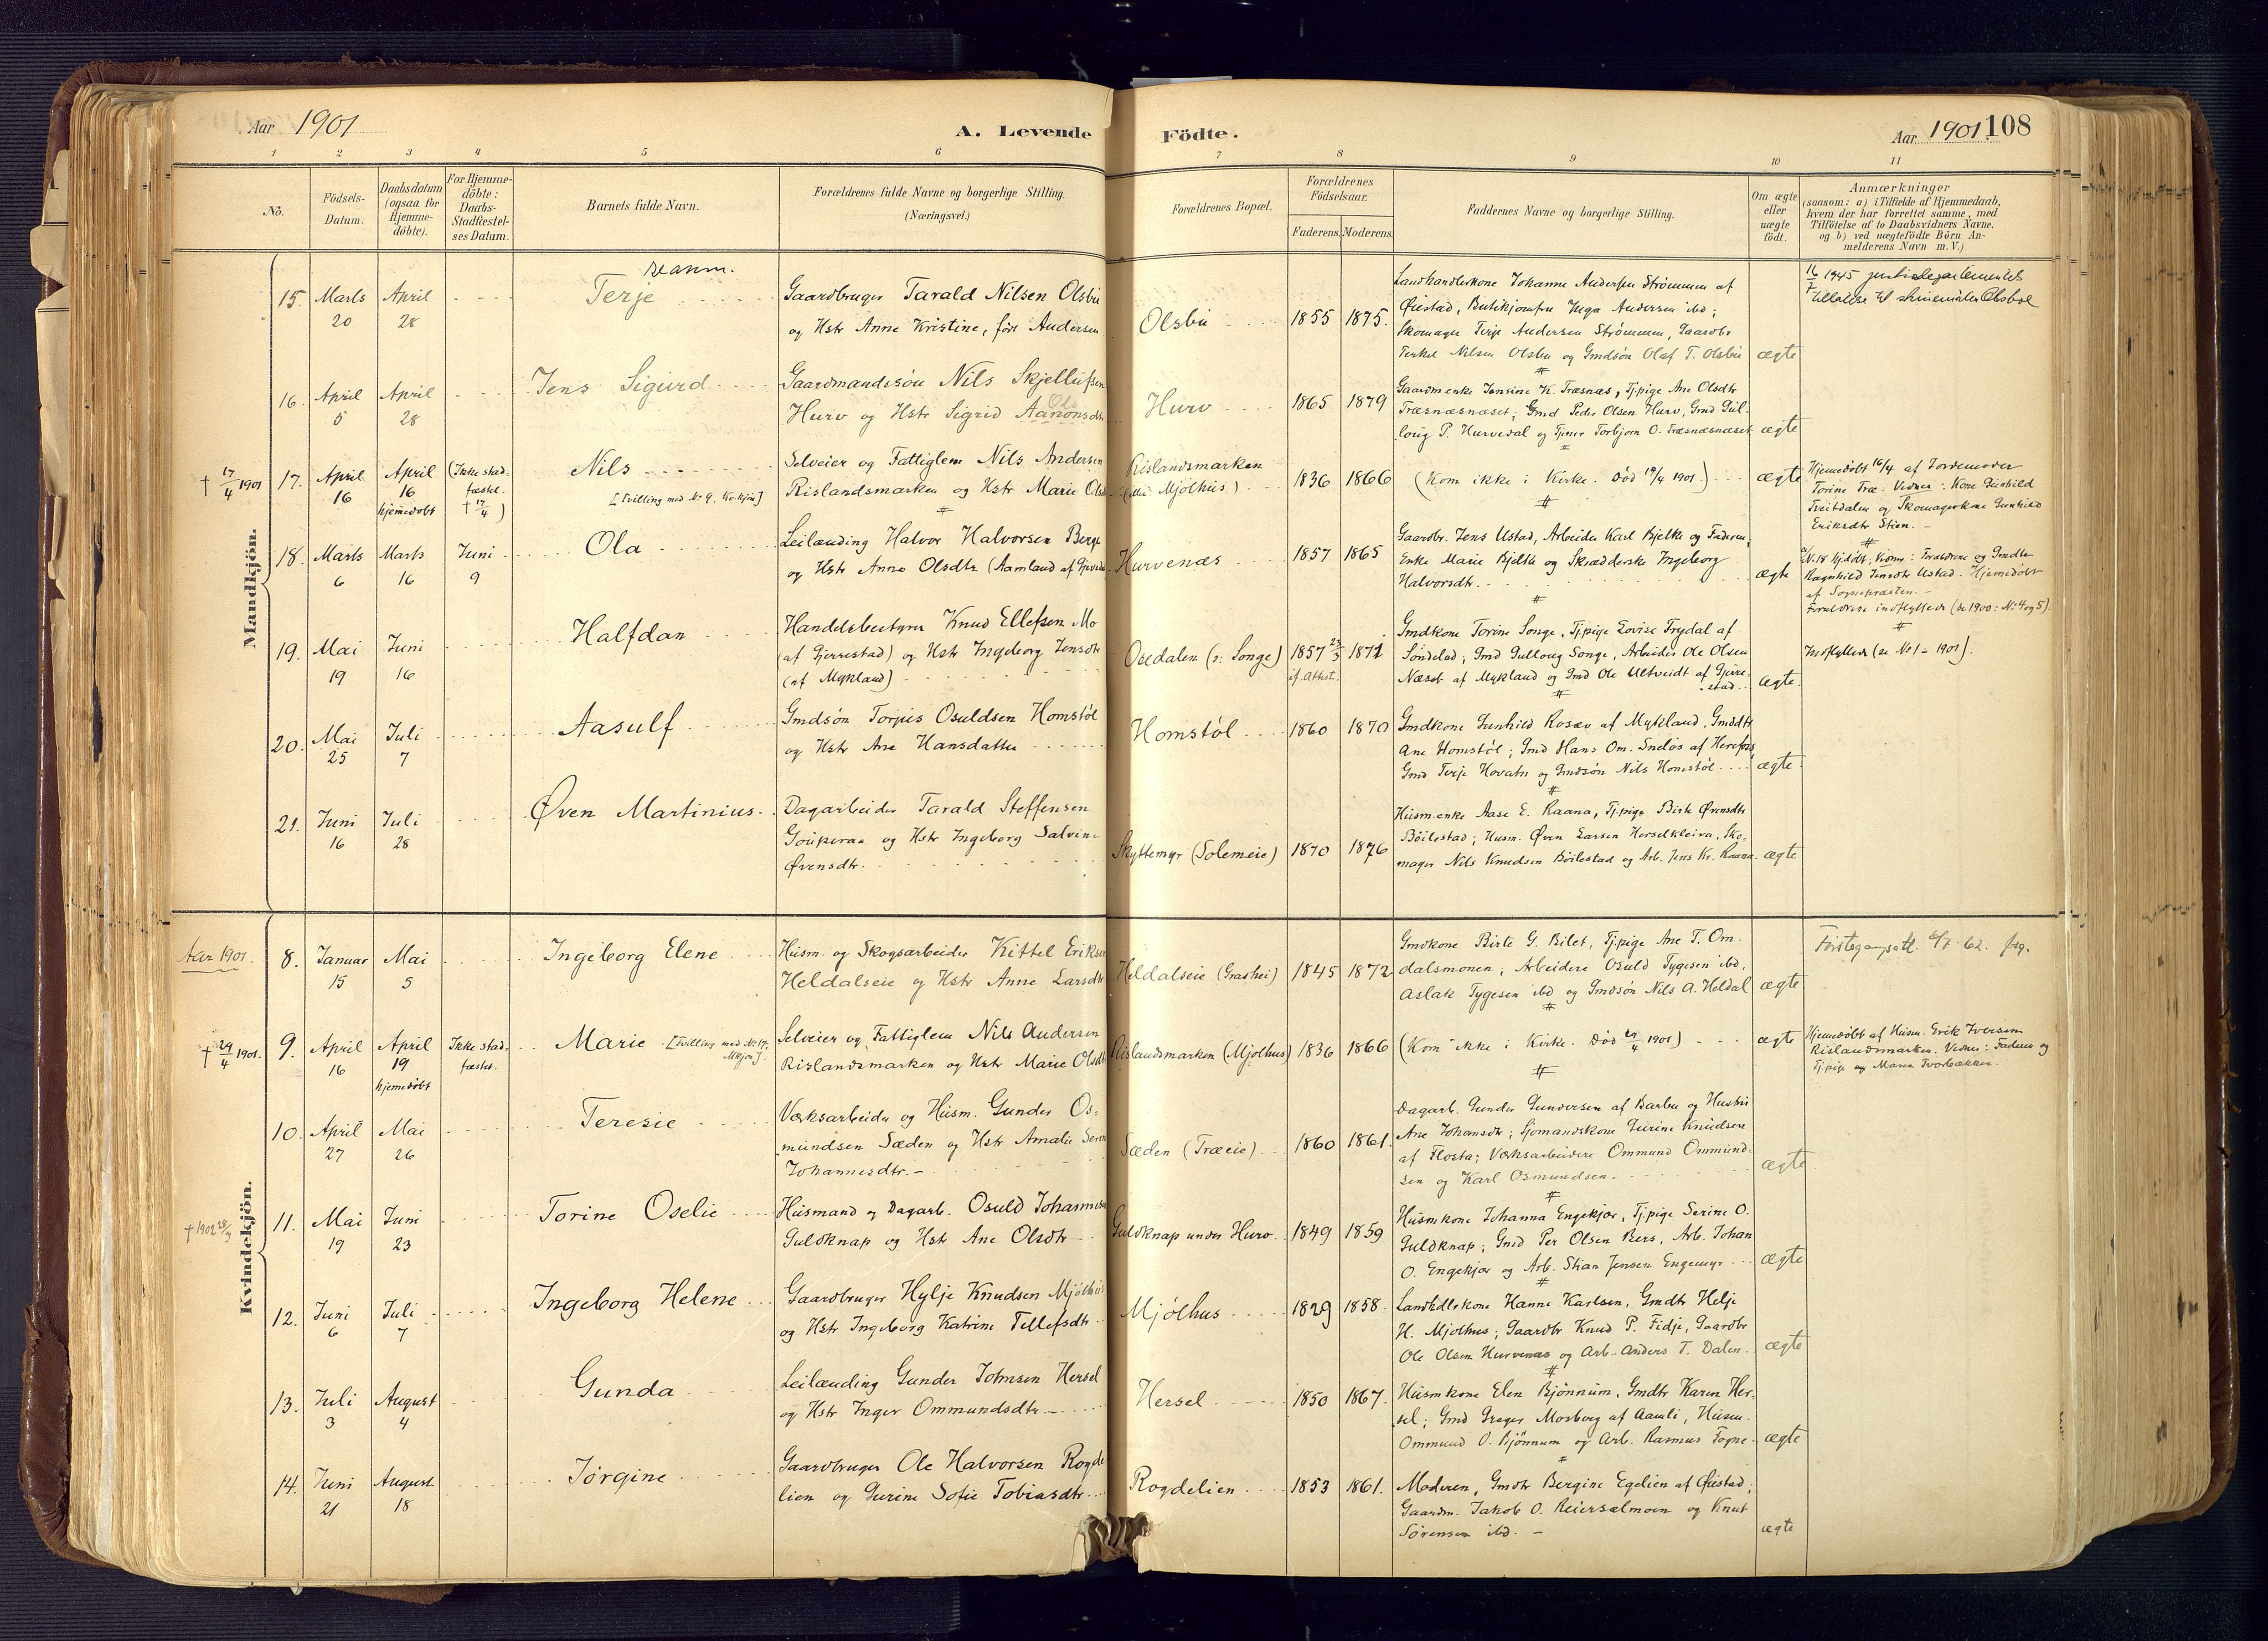 Aar 1901
A. Levende Födte.
Aar 1901 108
1 2 3 4 5 6 7 8 9 10 11
No.
Födsels-Datum.
Daabsdatum (ogsaa for Hjemme-döbte).
For Hjemme-döbte: Daabs-Stadfæstel-ses Datum.
Barnets fulde Navn.
Forældrenes fulde Navne og borgerlige Stilling. (Næringsvei.)
Forældrenes Bopæl.
Forældrenes Födselsaar.
Faderens. Moderens.
Faddernes Navne og borgerlige Stilling.
Om ægte eller uægte födt.
Anmærkninger
(saasom: a) i Tilfælde af Hjemmedaab,
hvem der har forrettet samme, med
Tilföielse af to Daabsvidners Navne.
og b) ved uægtefödte Börn An-
melderens Navn m. V.)
Mandkjön.
15. Marts 20 April 28
se anm.
Terje
Gaardbruger Tarald Nilsen Olsbu
og Hstr Anne Kristine, født Andersen
Olsbu 1855 1875.
Landhandlerkone Johanne Andersen Strømmen af
Øiestad, Butikjomfru Inga Andersen ibd;
Skomager Terje Andersen Strømmen, Gaardbr
Terkel Nilsen Olsbu og Gmdsøn Olaf T. Olsbu
ægte
16/7 1945 justisdepartementets
tillatelse til slektsnavnet Olsbu
16. April 5 April 28
Jens Sigurd
Gaardmandssøn Nils Skjellufsen
Hurv og Hstr Sigrid Aanonsdtr
Hurv 1865 1879
Gaardm.enke Jensine K. Træsnæs, Tj.pige Ane Olsdtr
Træsnæsnæset; Gmd Peder Olsen Hurv, Gmd Gul-
loug P. Hurvedal og Tjener Torbjørn O. Træsnæsnæset
ægte
† 17/4 1901 17. April 16 April 16 hjemedøbt (Ikke stad-fæstet. † 17/4)
Nils
[Tvilling med No 9. Kv.kjøn]
Selveier og Fattiglem Nils Andersen
Rislandsmarken og Hstr Marie Olsdt
Rislandsmarken
(Mjølhus) 1836 1866
(Kom ikke i Kirke. Død 17/4 1901.)
ægte
Hjemedøbt 16/4 af Jordemoder
Torine Træ. Vidner: Kone Gunhild
Tveitdalen og Skomagerkone Gunhild
Eriksdtr Stien.
18. Marts 6 Marts 16 Juni 9
Ola
Leilænding Halvor Halvorsen Berge
og Hstr Anne Olsdtr (Aamland af
Hurvenæs 1857 1865
Gaardbr. Jens Ustad, Arbeider Karl Bjelke og Faderen;
Enke Marie Bjelke og Skrædderske Ingeborg
Halvorsdtr.
ægte
No 18 Hj.døbt; Vidner: Forældrene og Gmdtr
Ragnhild Jensdtr Ustad. Hjemedøbt
af Sognepræsten.
Forældrene indflyttede (se 1900: No 4 og 5).
19. Mai 19 Juni 16
Halfdan
Handelsbestyrer Knud Ellefsen Mo
(af Gjerrestad) og Hstr Ingeborg Jensdtr
(af Mykland)
Osedalen (v. Songe) 1857 23/3 1871
if. Attest.
Gmdkone Torine Songe, Tj.pige Lovise Frydal af
Søndeled; Gmd Gulloug Songe, Arbeider Ole Olsen
Næset af Mykland og Gmd Ole Ultveidt af Gjerre-
stad.
ægte.
Indflyttede (se No 1 - 1901).
20. Mai 25 Juli 7
Aasulf
Gmdsøn Torjus Osuldsen Homstøl
og Hstr Ane Hansdatter
Homstøl 1860 1870
Gmdkone Gunhild Rosæv af Mykland, Gmddtr
Ane Homstøl; Gmd Hans Om. Sneløs af Herefos,
Gmd Terje Hovatn og Gmdsøn Nils Homstøl
ægte
21. Juni 16 Juli 28
Øven Martinius
Dagarbeider Tarald Steffensen
Gouperaa og Hstr Ingeborg Salvine
Øvensdtr.
Skyttemyr (Solemeie) 1870 1876
Husm.enke Aase E. Raana, Tj.pige Birte Øvensdtr
Bøilestad; Husm. Øven Larsen Herselkleiva, Sko-
mager Nils Knudsen Bøilestad og Arb. Jens Kr. Raana.
ægte
Kvindekjön.
Aar 1901. 8. Januar 15 Mai 5
Ingeborg Elene
Husm. og Skogsarbeider Kittel Eriksen
Heldalseie og Hstr Anne Larsdtr
Heldalseie (Grashei) 1845 1872
Gmdkone Birte G. Bilet, Tj.pige Ane T. Om-
dalsmonen; Arbeidere Osuld Tygesen ibd,
Aslak Tygesen ibd og Gmdsøn Nils A. Heldal
ægte
Førstegangsatt. 6/7-62.
† 29/4 1901. 9. April 16 April 19 hjemedøbt Ikke stad-fæstet.
Marie [Tvilling med No 17, M.kjøn].
Selveier og Fattiglem Nils Andersen
Rislandsmarken og Hstr Marie Olsdt
Rislandsmarken (Mjølhus) 1836 1866
(Kom ikke i Kirke. Død 29/4 1901)
ægte
Hjemedøbt af Husm. Erik Iversen
Rislandsmarken. Vidner: Faderen og
Tj.pige Maren Tvorbækken.
10. April 27 Mai 26
Teresie
Væksarbeider og Husm. Gunder Os-
mundsen Sæden og Hstr Amalie Seren
Johannesdtr.
Sæden (Træeie) 1860 1861.
Dagarb. Gunder Gundersen af Barbu og Hustru
Ane Johansdtr; Sjømandskone Gurine Knudsen
af Flosta; Væksarbeidere Ommund Ommund-
sen og Karl Osmundsen.
ægte
† 1902 28/9 11. Mai 19 Juni 23
Torine Oselie
Husmand og Dagarb. Osuld Johannesen
Guldknap og Hstr Ane Olsdtr
Guldknap under Hurv. 1849 1859
Husmkone Johanna Engekjær, Tj.pige Serine O.
Guldknap; Gmd Per Olsen Bers, Arb. Johan
O. Engekjær og Arb. Stian Jensen Engemyr
ægte
12. Juni 6 Juli 7
Ingeborg Helene
Gaardbruger Hylje Knudsen Mjølhus
og Hstr Ingeborg Katrine Tellefsdtr
Mjølhus 1829 1858.
Landhdlrkone Hanne Karlsen, Gmdtr Helje
H. Mjølhus; Gaardbr Knud P. Fidje, Gaardbr
Ole Olsen Hurvenæs og Arb. Anders T. Dalen.
ægte
13. Juli 3 August 4
Gunda
Leilænding Gunder Johnsen Hersel
og Hstr Inger Ommundsdtr
Hersel 1850 1867.
Husmkone Elen Bjønnum, Gmdtr Karen Her-
sel; Gmd Greger Mosberg af Aamli, Husm.
Ommund O. Bjønnum og Arb. Rasmus Fogne
ægte
14. Juni 21 August 18
Jørgine
Gaardbruger Ole Halvorsen Rogde-
lien og Gurine Sofie Tobiasdtr
Rogdelien 1853 1861.
Moderen, Gmdtr Bergine Egelien af Øiestad;
Gaardm. Jakob O. Reiersælmoen og Knut
Sørensen ibd.
ægte